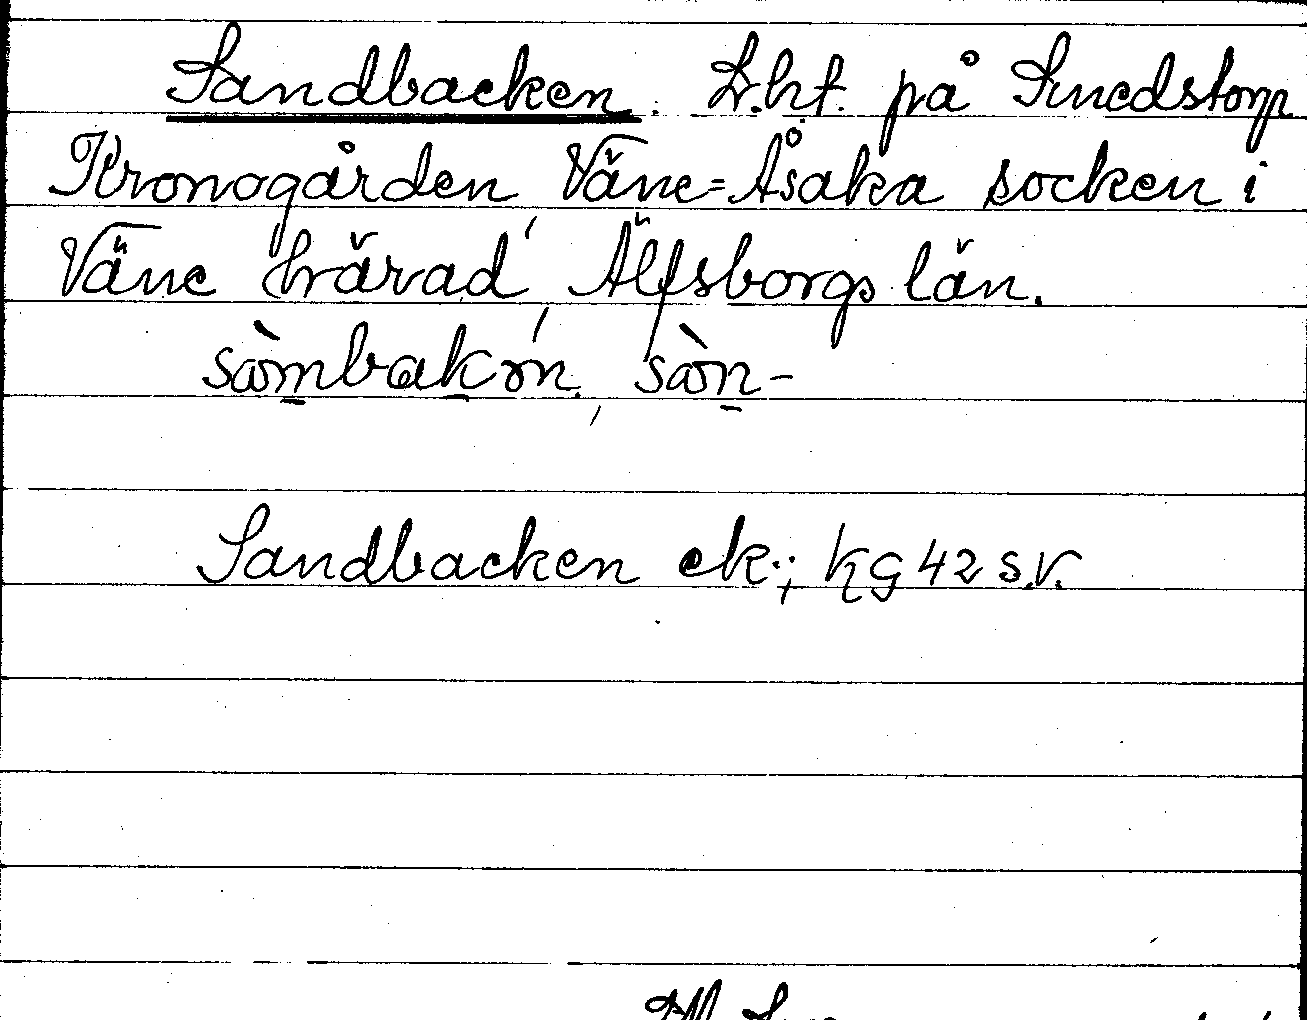 Sandbacken. Lht. på Smedstorp
Kronogården, Väne-Åsaka socken i
Väne härad, Älfsborgs län.
sàmbakɷn, sàn-
Sandbacken ek.; kg 42 s.v.